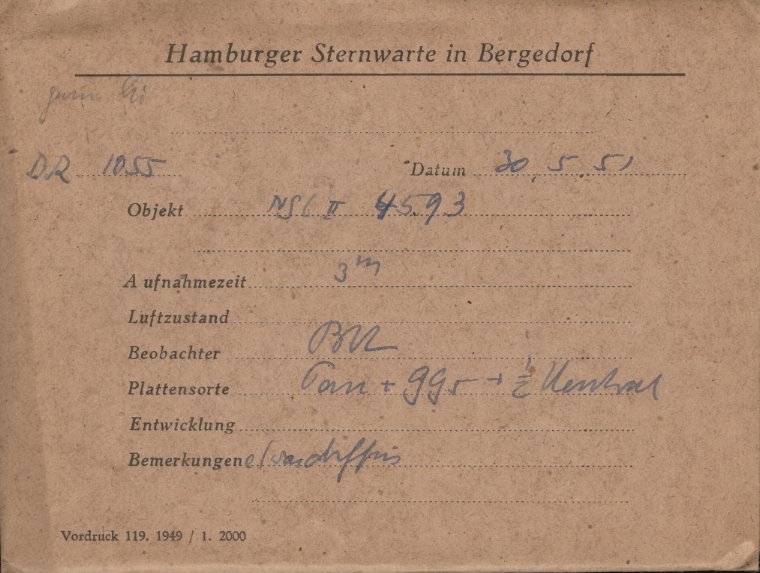 Hamburger Sternwarte in Bergedorf
DR 1055 Datum 30. 5. 51
Objekt II 4593
Aufnahmezeit 3m
Luftzustand
Beobachter
Plattensorte Pan + GG5 + ½ Neutral
Entwicklung
Bemerkungen etwas diffus
Vordruck 119. 1949 / 1. 2000